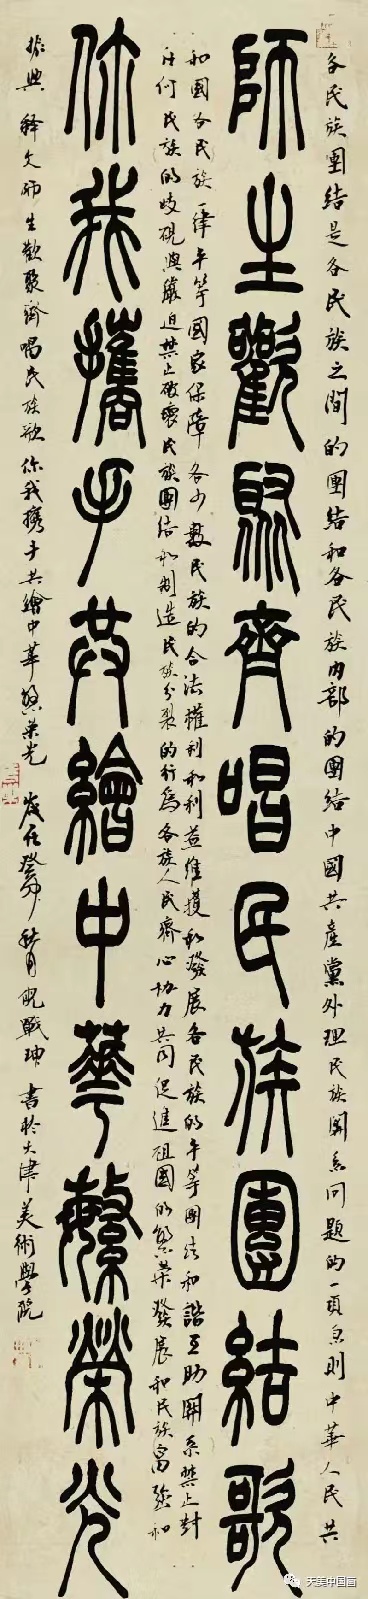 各民族團結是各民族之間的團結和各民族內部的團結中國共產黨处理民族關系問題的一項原則中華人民共
師生歡聚齊唱民族團結歌
和國各民族一律平等國家保障各少數民族的合法權利和利益維護和發展各民族的平等團結和諧互助關系禁止對
任何民族的歧視與壓迫禁止破壞民族團結和制造民族分裂的行為各族人民齊心協力共同促進祖國的繁榮發展和民族富強和
你我攜手共繪中華繁榮光
振興 釋文師生歡聚齊唱民族歌你我携手共繪中華繁榮光 歲在癸卯秋月 戰坤書於天津美術學院
天美中国画